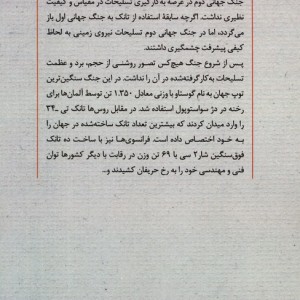 جنگ جهانی دوم در عرصه به کارگیری تسلیحات در مقیاس و کیفیت
نظیری نداشت. اگرچه سابقهٔ استفاده از تانک به جنگ جهانی اول باز
می‌گردد، اما در جنگ جهانی دوم تسلیحات نیروی زمینی به لحاظ
کیفی پیشرفت چشمگیری داشتند.
پس از شروع جنگ هیچ‌کس تصور روشنی از حجم، برد و عظمت
تسلیحات به کار گرفته‌شده در آن را نداشت. در این جنگ سنگین‌ترین
توپ جهان به نام گوستاو با وزنی معادل ۱.۳۵۰ تن توسط آلمان‌ها برای
رخنه در دژ سواستوپول استفاده شد. در مقابل روس‌ها تانک تی ـ۳۴
را وارد میدان کردند که بیشترین تعداد تانک ساخته‌شده در جهان را
به خود اختصاص داده است. فرانسوی‌ها نیز با ساخت ده تانک
فوق‌سنگین شار۲ سی با ۶۹ تن وزن در رقابت با دیگر کشورها توان
فنی و مهندسی خود را به رخ حریفان کشیدند و...